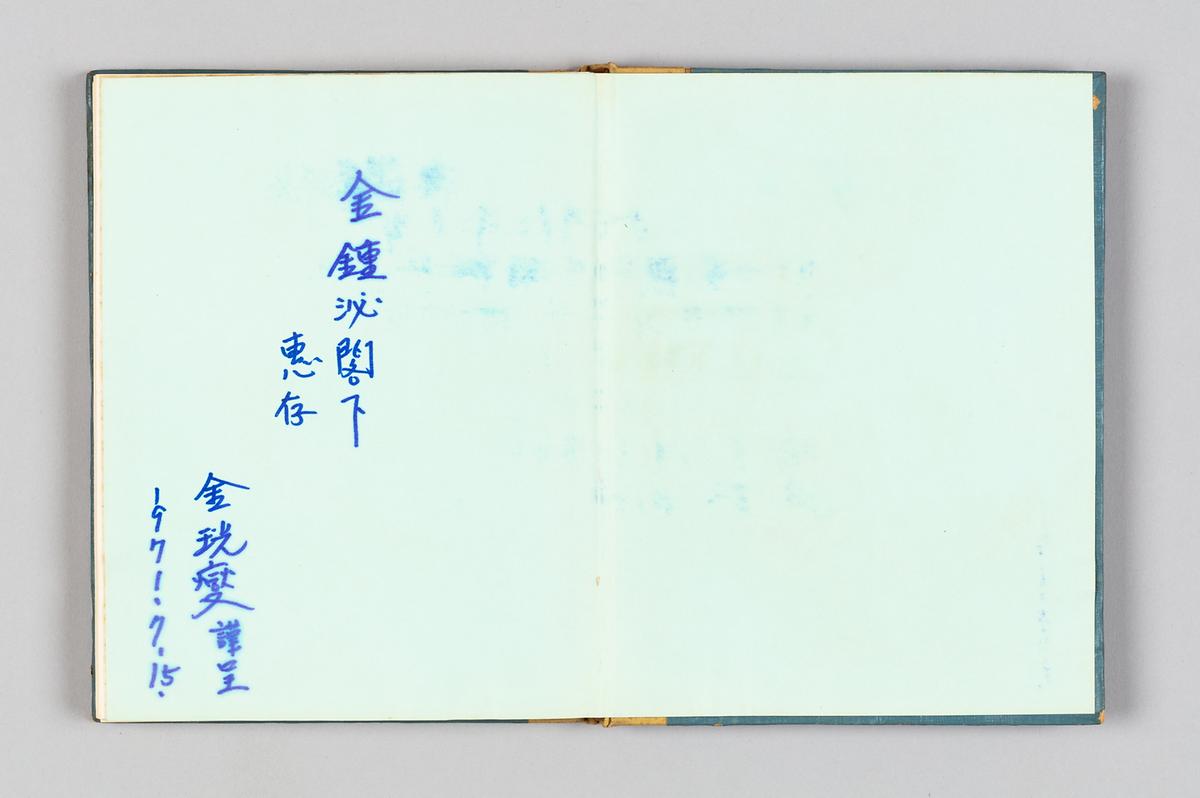 金鍾泌閣下
惠存
金珖燮 謹呈
1971.7.15.